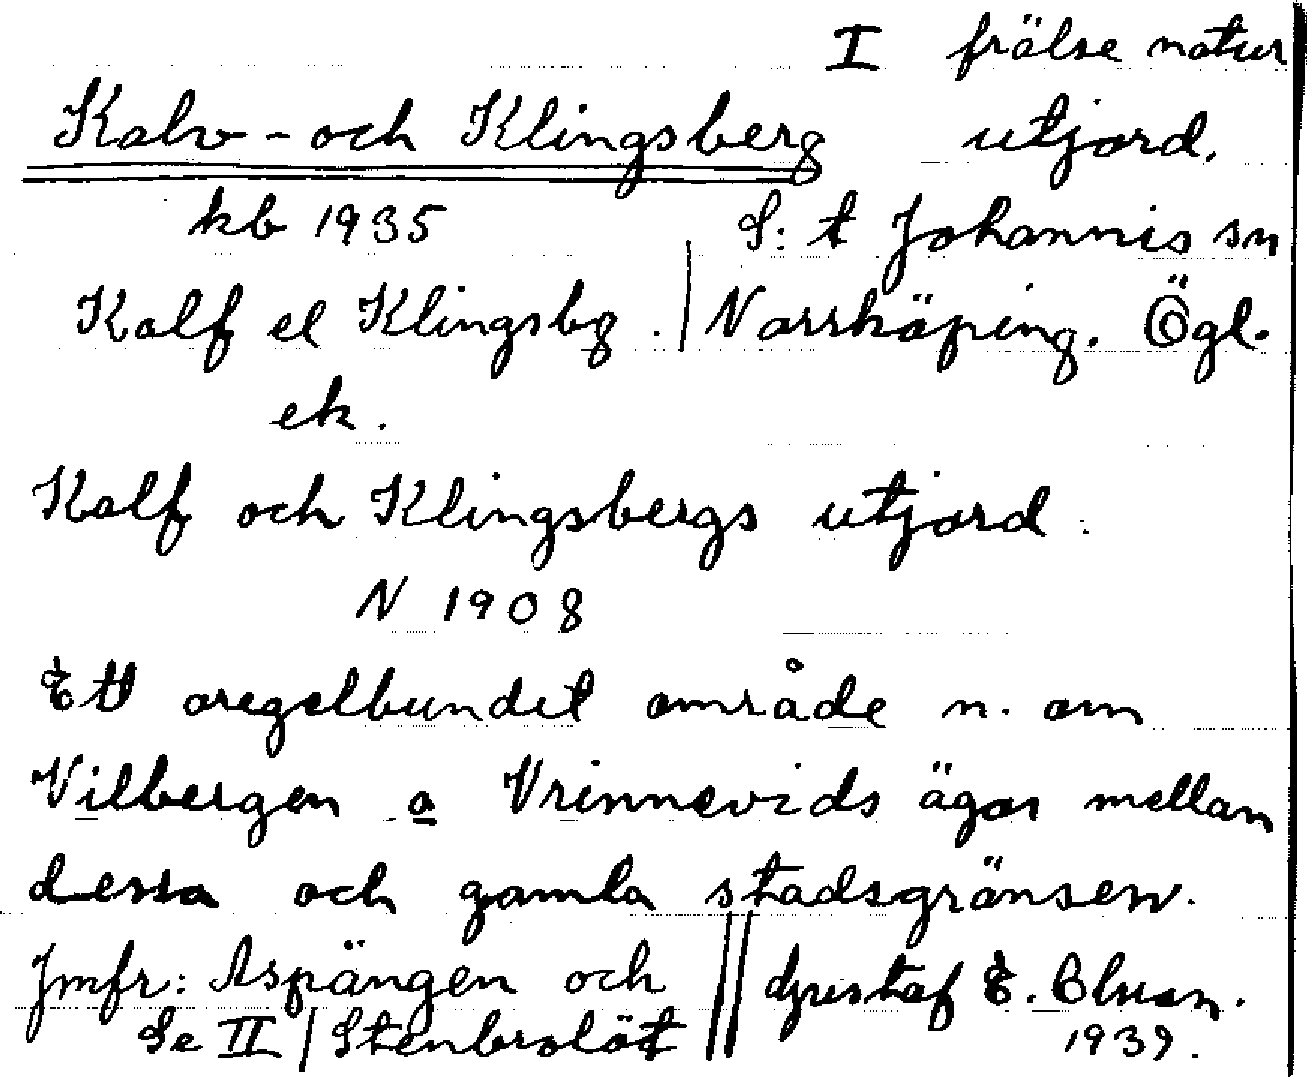 I frälse natur
Kalv- och Klingsberg utjord.
kb 1935 S:t Johannis sn
Kalf el Klingsbg. / Norrköping. Ögl.
ek.
Kalf och Klingsbergs utjord.
N 1908
Ett oregelbundet område n. om
Vilbergen o Vrinnevids ägor mellan
dessa och gamla stadsgränsen.
Jmfr: Aspängen och // Gustaf E.
Se II / Stenbrolöt 1939.